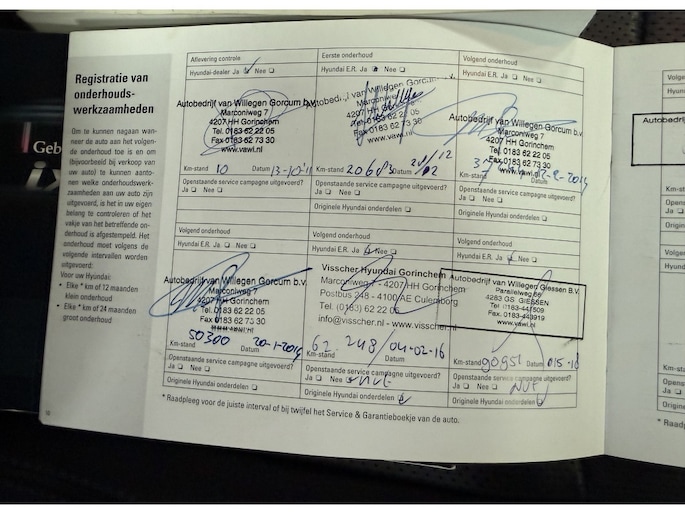 Registratie van
onderhouds-
werkzaamheden
Om te kunnen nagaan wan-
neer de auto aan het volgen-
de onderhoud toe is en om
(bijvoorbeeld bij verkoop van
uw auto) te kunnen aanto-
nen welke onderhoudswerk-
zaamheden aan uw auto zijn
uitgevoerd, is het in uw eigen
belang te controleren of het
vakje van het betreffende on-
derhoud is afgestempeld. Het
onderhoud moet volgens de
volgende intervallen worden
uitgevoerd:
Voor uw Hyundai:
• Elke * km of 12 maanden
klein onderhoud
• Elke * km of 24 maanden
groot onderhoud
Geb
Aflevering controle
Hyundai-dealer Ja Nee
Autobedrijf van Willegen Gorcum b.v.
Marconiweg 7
4207 HH Gorinchem
Tel. 0183 62 22 05
Fax 0183 62 73 30
www.vawi.nl
Km-stand 10 Datum 13-10-'11
Openstaande service campagne uitgevoerd?
Ja Nee
Eerste onderhoud
Hyundai E.R. Ja Nee
Autobedrijf van Willegen Gorcum b.v.
Marconiweg 7
4207 HH Gorinchem
Tel. 0183 62 22 05
Fax 0183 62 73 30
www.vawi.nl
Km-stand Datum
Openstaande service campagne uitgevoerd?
Ja Nee
Originele Hyundai onderdelen
Volgend onderhoud
Hyundai E.R. Ja Nee
Autobedrijf van Willegen Gorcum b.v.
Marconiweg 7
4207 HH Gorinchem
Tel. 0183 62 22 05
Fax 0183 62 73 30
www.vawi.nl
Km-stand Datum
Openstaande service campagne uitgevoerd?
Ja Nee
Originele Hyundai onderdelen
Volgend onderhoud
Hyundai E.R. Ja Nee
Autobedrijf van Willegen Gorcum b.v.
Marconiweg 7
4207 HH Gorinchem
Tel. 0183 62 22 05
Fax 0183 62 73 30
www.vawi.nl
Km-stand 50300 Datum 20-1-2014
Openstaande service campagne uitgevoerd?
Ja Nee
Originele Hyundai onderdelen
Volgend onderhoud
Hyundai E.R. Ja Nee
Visscher Hyundai Gorinchem
Marconiweg 7 - 4207 HH Gorinchem
Postbus 248 - 4100 AE Culemborg
Tel. (0183) 62 22 05
info@visscher.nl - www.visscher.nl
Km-stand 62.248 Datum 04-02-16
Openstaande service campagne uitgevoerd?
Ja Nee
Originele Hyundai onderdelen
Volgend onderhoud
Hyundai E.R. Ja Nee
Autobedrijf van Willegen Giessen B.V.
Parallelweg
4283 GS GIESSEN
www.vawi.nl
Km-stand 90951 Datum
Openstaande service campagne uitgevoerd?
Ja Nee NVT
Originele Hyundai onderdelen
* Raadpleeg voor de juiste interval of bij twijfel het Service & Garantieboekje van de auto.
Volge
Hyun
Autobedrij
Km-st
Opens
Ja
Origin
* Raadp